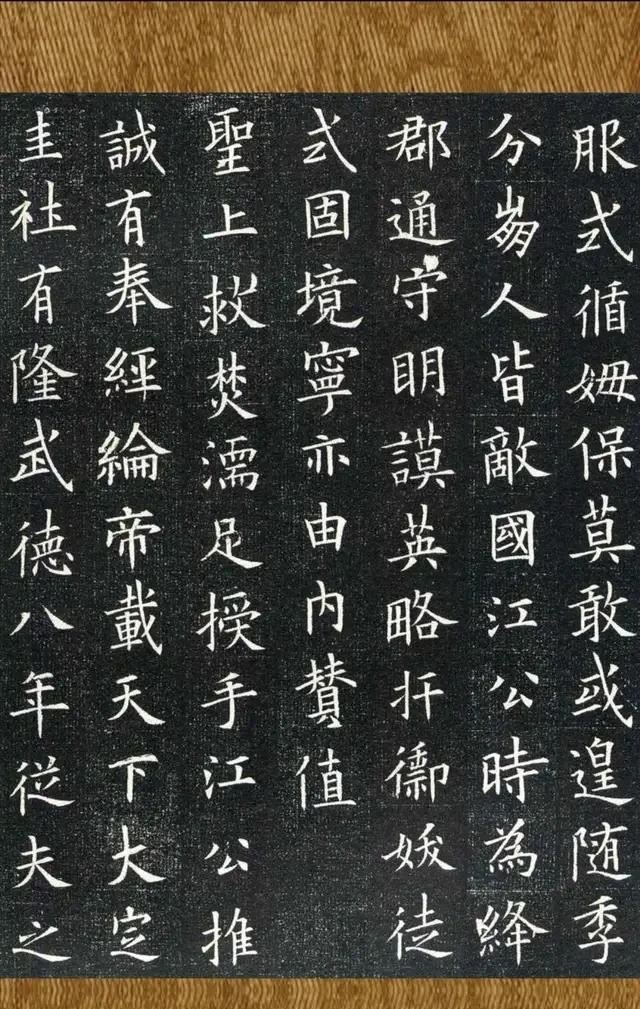 服式循姆保莫敢或遑随季
分崩人皆敵國江公時為絳
郡通守明謨英略扞禦奸徒
式固境寧亦由内賛值
聖上救焚濡足授手江公推
誠有奉經綸帝載天下大定
圭社有隆武德八年従夫之